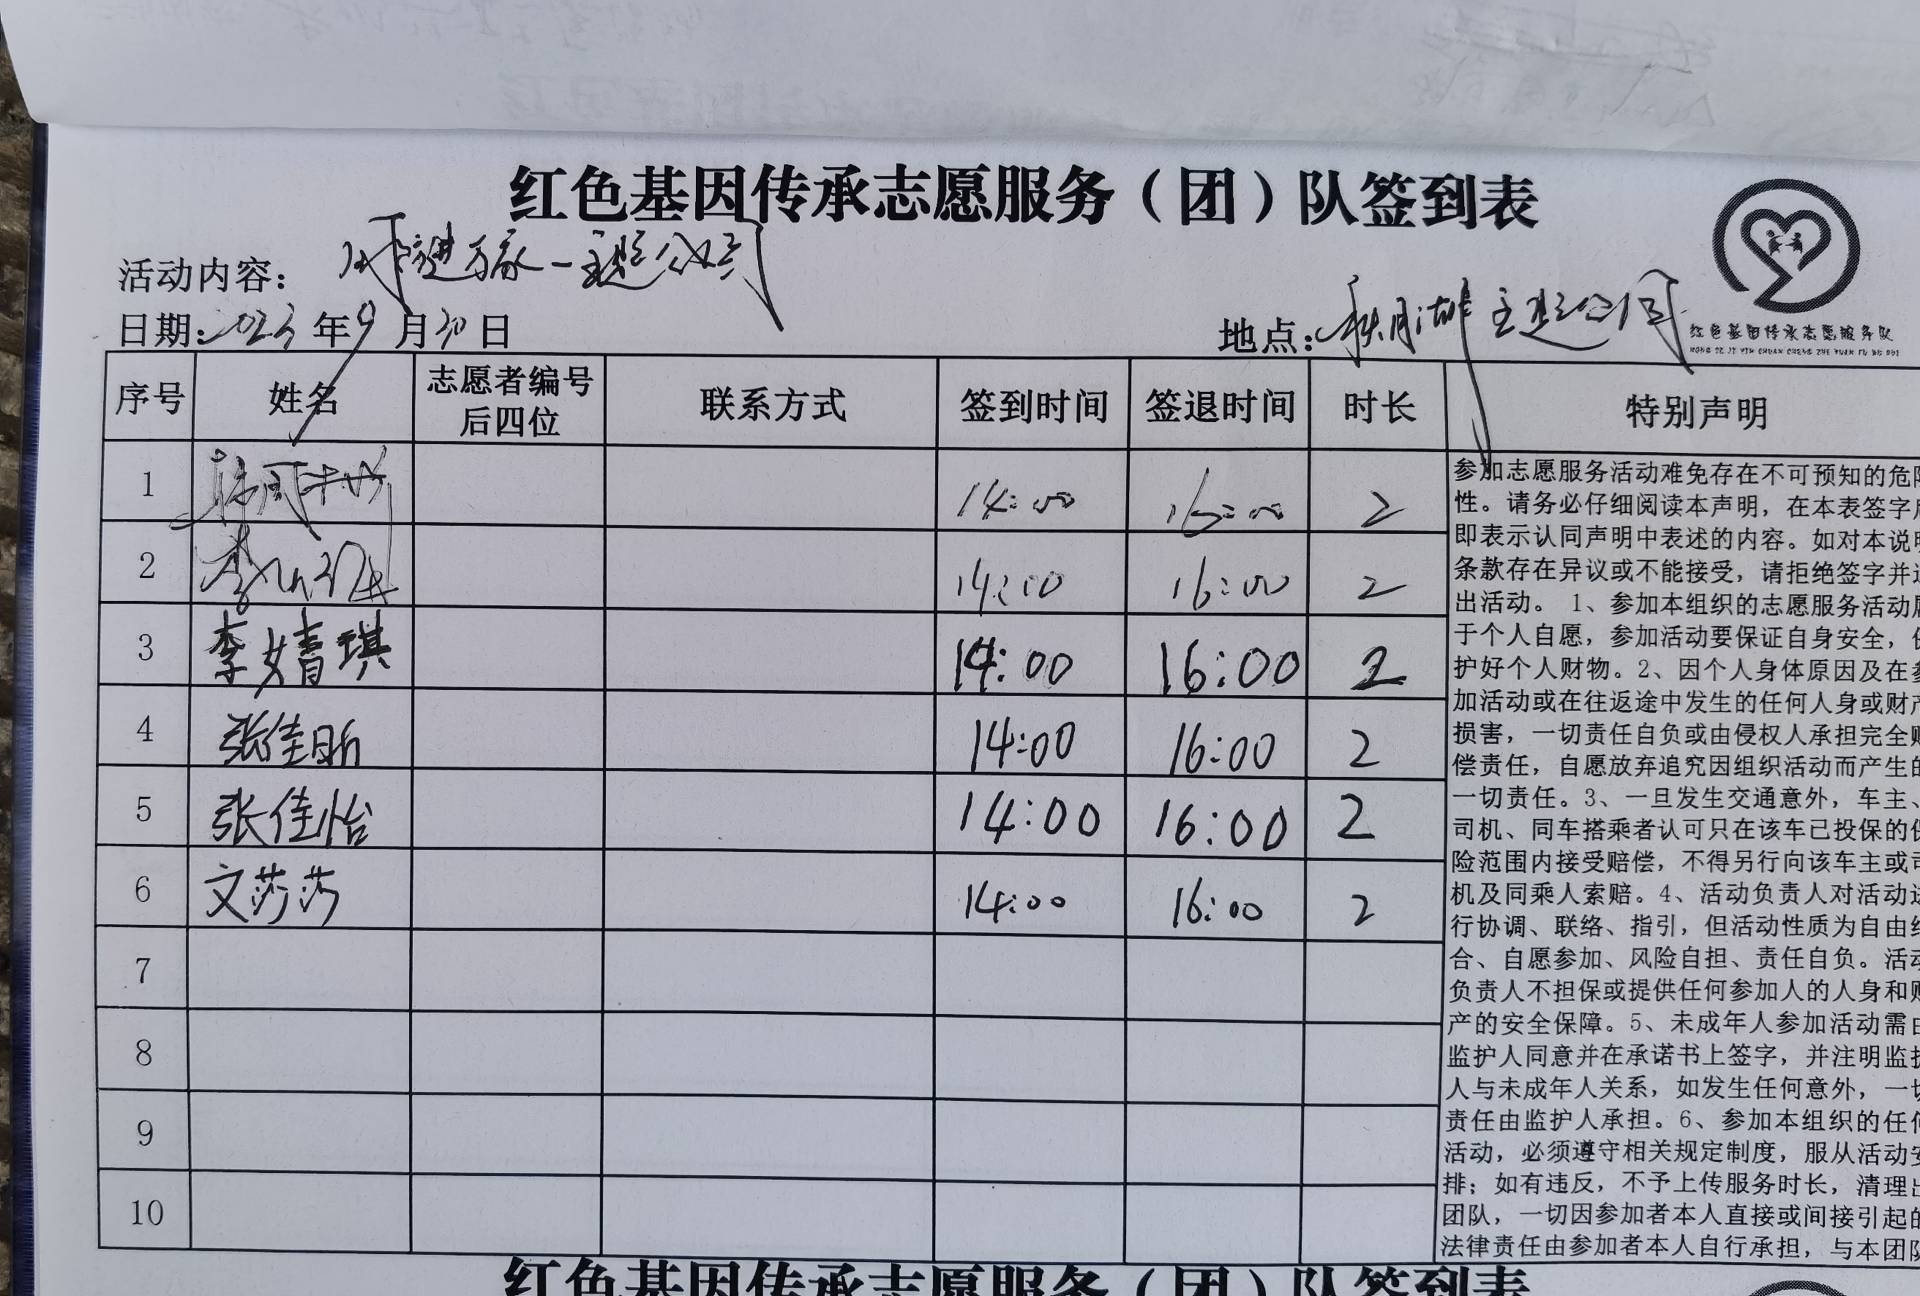 红色基因传承志愿服务（团）队签到表
活动内容：进万家—主题公园
日期：2023年9月30日
地点：秋月湖主题公园
红色基因传承志愿服务队
HONG SE JI YIN CHUAN CHENG ZHI YUAN FU WU DUI
序号 姓名 志愿者编号后四位 联系方式 签到时间 签退时间 时长 特别声明
1 14:00 16:00 2
2 李 14:00 16:00 2
3 李婧琪 14:00 16:00 2
4 张佳昕 14:00 16:00 2
5 张佳怡 14:00 16:00 2
6 文莎莎 14:00 16:00 2
7
8
9
10
参加志愿服务活动难免存在不可预知的危险
性。请务必仔细阅读本声明，在本表签字后
即表示认同声明中表述的内容。如对本说明
条款存在异议或不能接受，请拒绝签字并退
出活动。1、参加本组织的志愿服务活动属
于个人自愿，参加活动要保证自身安全，保
护好个人财物。2、因个人身体原因及在参
加活动或在往返途中发生的任何人身或财产
损害，一切责任自负或由侵权人承担完全赔
偿责任，自愿放弃追究因组织活动而产生的
一切责任。3、一旦发生交通意外，车主、
司机、同车搭乘者认可只在该车已投保的保
险范围内接受赔偿，不得另行向该车主或司
机及同乘人索赔。4、活动负责人对活动进
行协调、联络、指引，但活动性质为自由组
合、自愿参加、风险自担、责任自负。活动
负责人不担保或提供任何参加人的人身和财
产的安全保障。5、未成年人参加活动需由
监护人同意并在承诺书上签字，并注明监护
人与未成年人关系，如发生任何意外，一切
责任由监护人承担。6、参加本组织的任何
活动，必须遵守相关规定制度，服从活动安
排；如有违反，不予上传服务时长，清理出
团队，一切因参加者本人直接或间接引起的
法律责任由参加者本人自行承担，与本团队
红色基因传承志愿服务（团）队签到表